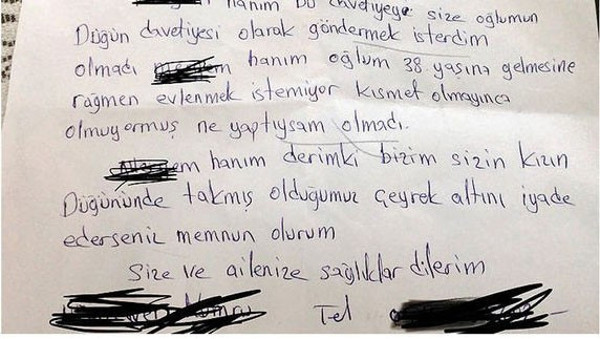 hanım bu davetiyeye size oğlumun
Düğün davetiyesi olarak göndermek isterdim
olmadı hanım oğlum 38 yaşına gelmesine
rağmen evlenmek istemiyor kısmet olmayınca
olmuyormuş ne yaptıysam olmadı.
hanım derimki bizim sizin kızın
Düğününde takmış olduğumuz çeyrek altını iyade
ederseniz memnun olurum
Size ve ailenize sağlıklar dilerim
Tel